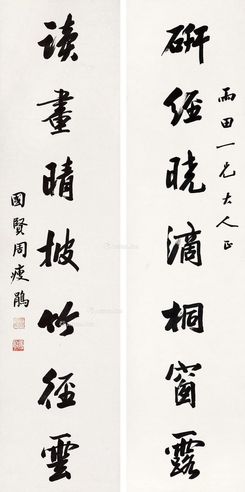 雨田一兄大人正
研經曉滴桐窗露
讀畫晴披竹徑雲
國賢周瘦鵑